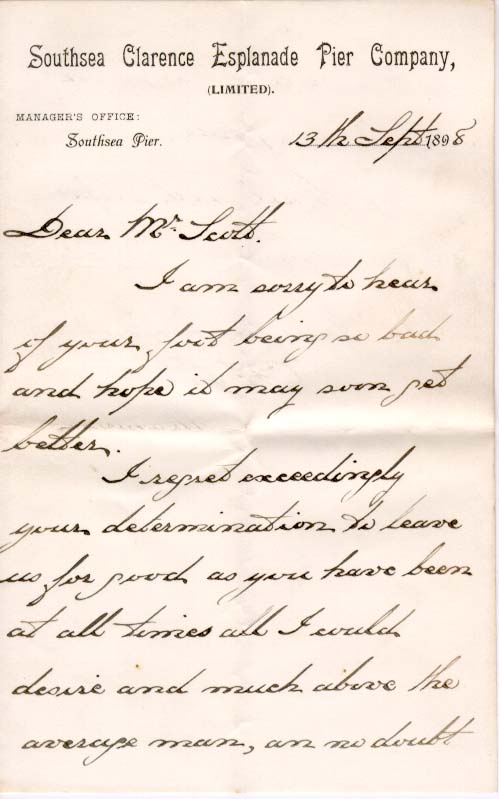 Southsea Clarence Esplanade Pier Company,
(LIMITED).
MANAGER'S OFFICE:
Southsea Pier.
13th Sept 1898
Dear Mr. Scott.
I am sorry to hear
of your foot being so bad
and hope it may soon get
better.
I regret exceedingly
your determination to leave
us for good as you have been
at all times all I could
desire and much above the
average man, an no doubt